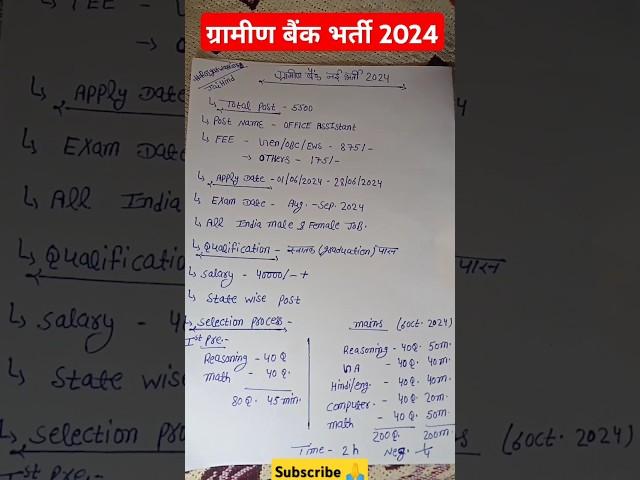 ग्रामीण बैंक भर्ती 2024
Jai Hind
ग्रामीण बैंक नई भर्ती 2024
↳ Total Post - 5500
↳ Post Name - OFFICE Assistant
↳ FEE - Gen/OBC/EWS - 875/-
→ OTHERS - 175/-
↳ Apply Date - 01/06/2024 - 28/06/2024
↳ Exam Date - Aug. - Sep. 2024
↳ All India male & Female Job.
↳ Qualification - स्नातक (graduation) पास
↳ Salary - 40000/- +
↳ State wise Post
↳ Selection process -
Ist Pre. -
Reasoning - 40 Q.
math - 40 Q.
80 Q. 45 min.
mains (6 Oct. 2024)
Reasoning - 40 Q. 50 m.
GA - 40 Q. 40 m.
Hindi/eng. - 40 Q. 40 m.
Computer - 40 Q. 20 m.
math - 40 Q. 50 m.
200 Q. 200 m.
Time - 2 h Neg. 1/4
Subscribe 🙏